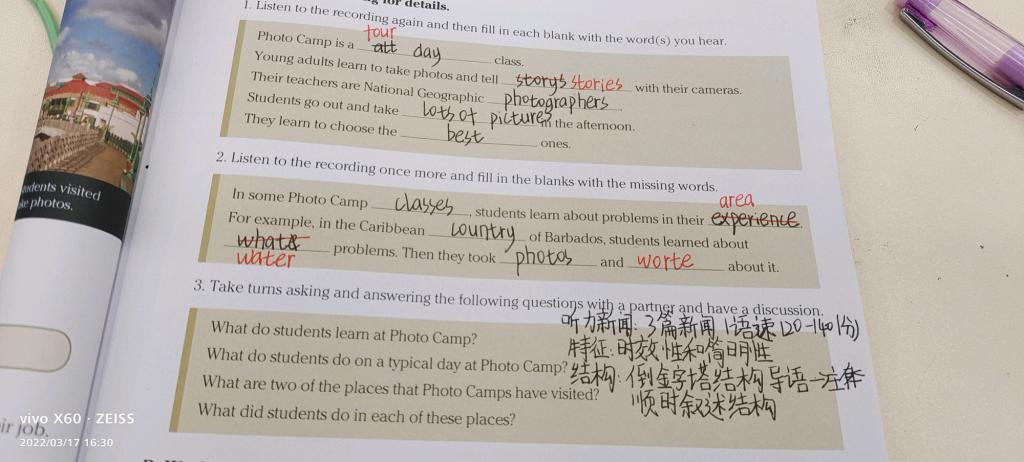 for details.
1. Listen to the recording again and then fill in each blank with the word(s) you hear.
four
Photo Camp is a att day class.
Young adults learn to take photos and tell storys stories with their cameras.
Their teachers are National Geographic photographers.
Students go out and take lots of pictures in the afternoon.
They learn to choose the best ones.
2. Listen to the recording once more and fill in the blanks with the missing words.
area
In some Photo Camp classes, students learn about problems in their experience.
For example, in the Caribbean country of Barbados, students learned about
water problems. Then they took photos and worte about it.
3. Take turns asking and answering the following questions with a partner and have a discussion.
What do students learn at Photo Camp?
What do students do on a typical day at Photo Camp?
What are two of the places that Photo Camps have visited?
What did students do in each of these places?
听力新闻: 3篇新闻 (语速120-140/分)
特征: 时效性和简明性
结构: 倒金字塔结构 导语→
顺时叙述结构
students visited
photos.
vivo X60 · ZEISS
2022/03/17 16:30
job.